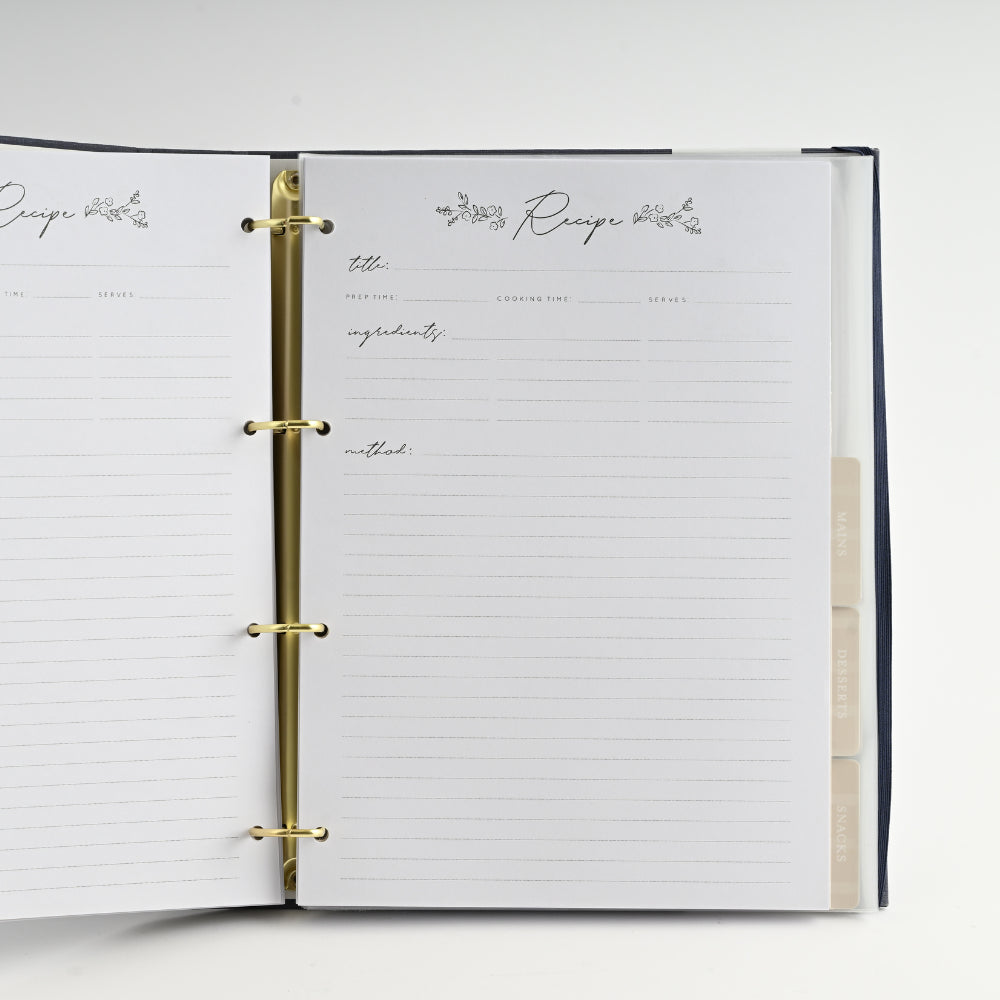 Recipe
TIME: SERVES
Recipe
title:
PREP TIME: COOKING TIME: SERVES
ingredients:
method:
MAINS
DESSERTS
SNACKS